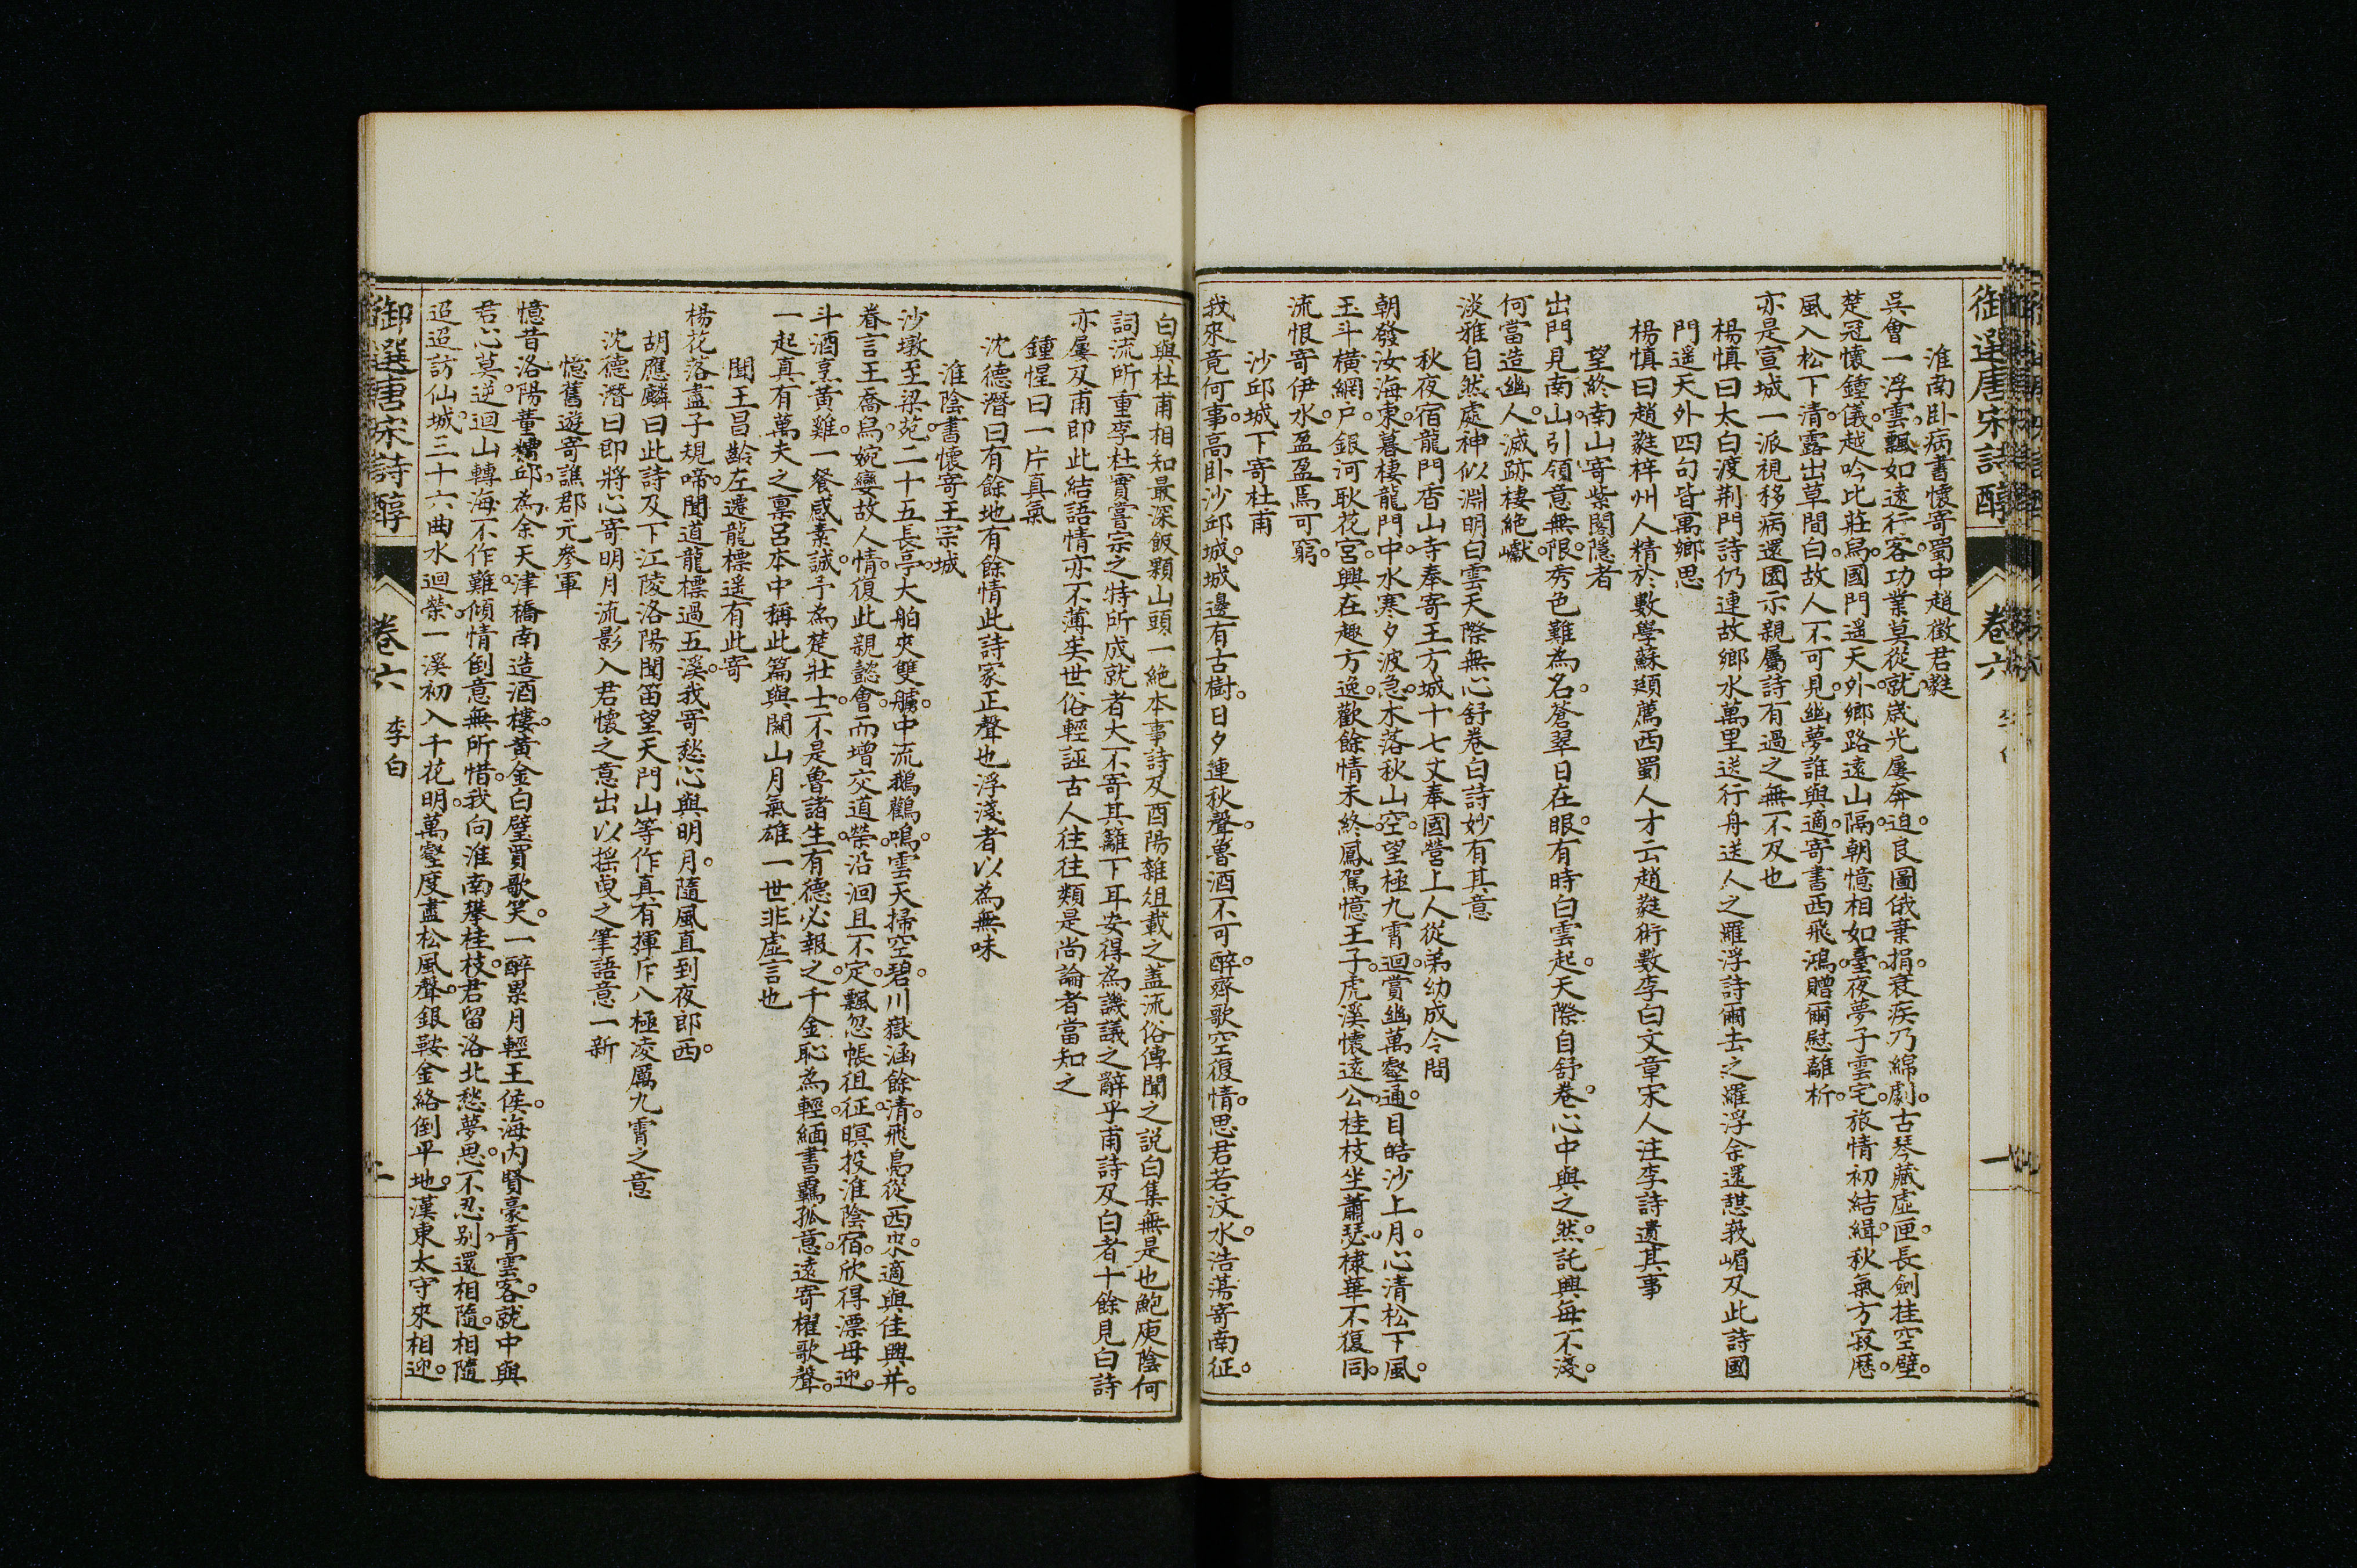 御選唐宋詩醇 卷六 一
淮南卧病書懷寄蜀中趙徵君蕤
吳會一浮雲飄如遠行客功業莫從就歲光屢奔迫良圖俄棄捐衰疾乃綿劇古琴藏虛匣長劍挂空壁
楚冠懷鍾儀越吟比莊舄國門遥天外鄉路遠山隔朝憶相如臺夜夢子雲宅旅情初結緝秋氣方寂歷
風入松下清露出草間白故人不可見幽夢誰與適寄書西飛鴻贈爾慰離析
亦是宣城一派視移病還園示親屬詩有過之無不及也
楊慎曰太白渡荆門詩仍連故鄉水萬里送行舟送人之羅浮詩爾去之羅浮余還憇峩嵋及此詩國
門遥天外四句皆寓鄉思
楊慎曰趙蕤梓州人精於數學蘇頲薦西蜀人才云趙蕤術數李白文章宋人注李詩遺其事
望終南山寄紫閣隱者
出門見南山引領意無限秀色難為名蒼翠日在眼有時白雲起天際自舒卷心中與之然託興每不淺
何當造幽人滅跡棲絶巘
淡雅自然處神似淵明白雲天際無心舒卷白詩妙有其意
秋夜宿龍門香山寺奉寄王方城十七丈奉國營上人從弟幼成令問
朝發汝海東暮棲龍門中水寒夕波急木落秋山空望極九霄迥賞幽萬壑通目皓沙上月心清松下風
玉斗橫網戶銀河耿花宮興在趣方逸歡餘情未終鳳駕憶王子虎溪懷遠公桂枝坐蕭瑟棣華不復同
流恨寄伊水盈盈焉可窮
沙邱城下寄杜甫
我來竟何事高卧沙邱城城邊有古樹日夕連秋聲魯酒不可醉齊歌空復情思君若汶水浩蕩寄南征
白與杜甫相知最深飯顆山頭一絶本事詩及酉陽雜俎載之蓋流俗傳聞之説白集無是也鮑庾陰何
詞流所重李杜實嘗宗之特所成就者大不寄其籬下耳安得為譏議之辭乎甫詩及白者十餘見白詩
亦屢及甫即此結語情亦不薄矣世俗輕誣古人往往類是尚論者當知之
鍾惺曰一片真氣
沈德潛曰有餘地有餘情此詩家正聲也浮淺者以為無味
淮陰書懷寄王宗城
沙墩至梁苑二十五長亭大舶夾雙艣中流鵝鸛鳴雲天掃空碧川嶽涵餘清飛鳧從西來適與佳興并
眷言王喬舄婉孌故人情復此親懿會而增交道榮沿洄且不定飄忽悵徂征暝投淮陰宿欣得漂母迎
斗酒烹黃雞一餐感素誠予為楚壯士不是魯諸生有德必報之千金恥為輕緬書羈孤意遠寄櫂歌聲
一起真有萬夫之稟呂本中稱此篇與關山月氣雄一世非虛言也
聞王昌齡左遷龍標遥有此寄
楊花落盡子規啼聞道龍標過五溪我寄愁心與明月隨風直到夜郎西
胡應麟曰此詩及下江陵洛陽聞笛望天門山等作真有揮斥八極凌厲九霄之意
沈德潛曰即將心寄明月流影入君懷之意出以摇曳之筆語意一新
憶舊遊寄譙郡元參軍
憶昔洛陽董糟邱為余天津橋南造酒樓黃金白璧買歌笑一醉累月輕王侯海內賢豪青雲客就中與
君心莫逆迴山轉海不作難傾情倒意無所惜我向淮南攀桂枝君留洛北愁夢思不忍别還相隨相隨
迢迢訪仙城三十六曲水迴縈一溪初入千花明萬壑度盡松風聲銀鞍金絡倒平地漢東太守來相迎
御選唐宋詩醇 卷六 李白